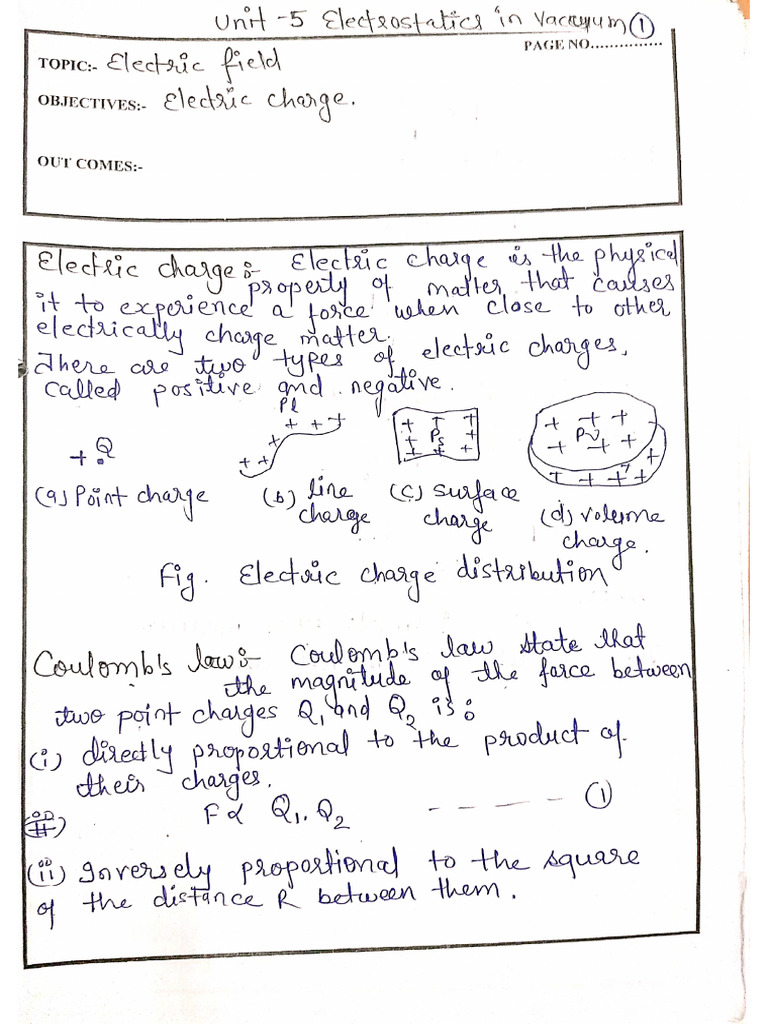 Unit -5 Electrostatics in Vacuum ①
PAGE NO...............
TOPIC:- Electric field
OBJECTIVES:- Electric charge.
OUT COMES:-
Electric charge:- Electric charge is the physical
property of matter that causes
it to experience a force when close to other
electrically charge matter.
There are two types of electric charges,
called positive and negative.
+ + + + + +
ρl
+ Q
+ + + + ρs + + + +
+ + + + ρv + + + + + + + +
(a) Point charge (b) line charge (c) surface charge (d) volume charge.
Fig. Electric charge distribution
Coulomb's law:- Coulomb's law state that
the magnitude of the force between
two point charges Q₁ and Q₂ is:
(i) directly proportional to the product of
their charges.
F ∝ Q₁. Q₂ - - - - - ①
(ii) Inversely proportional to the square
of the distance R between them.